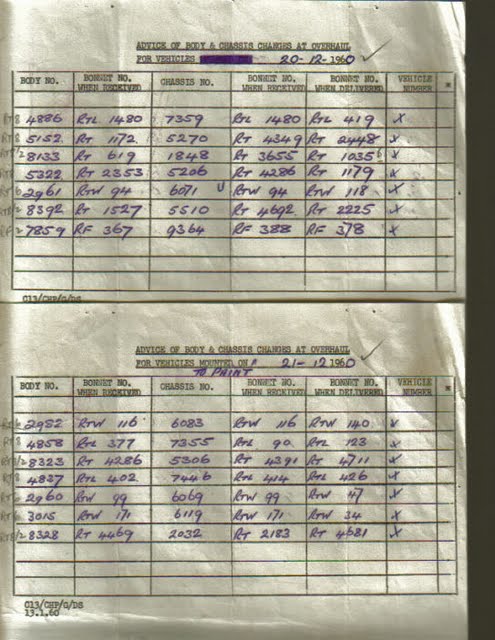 ADVICE OF BODY & CHASSIS CHANGES AT OVERHAUL
FOR VEHICLES 20-12-1960 ✓
BODY NO. BONNET NO. WHEN RECEIVED CHASSIS NO. BONNET NO. WHEN RECEIVED BONNET NO. WHEN DELIVERED VEHICLE NUMBER *
RT8 4886 RTL 1480 7359 RTL 1480 RTL 419 X
RT8 5152 RT 1172 5270 RT 4349 RT 2448 X
8133 RT 619 1848 RT 3655 RT 1035 X
5322 RT 2353 5206 RT 4286 RT 1179 X
2961 RTW 94 6071 U RTW 94 RTW 118 X
8392 RT 1527 5510 RT 4692 RT 2225 X
7859 RF 367 9364 RF 388 RF 378 X
C13/CHP/G/DS
ADVICE OF BODY & CHASSIS CHANGES AT OVERHAUL
FOR VEHICLES MOUNTED ON 21-12-1960 ✓
TO PAINT
BODY NO. BONNET NO. WHEN RECEIVED CHASSIS NO. BONNET NO. WHEN RECEIVED BONNET NO. WHEN DELIVERED VEHICLE NUMBER *
2952 RTW 116 6083 RTW 116 RTW 140 X
4858 RTL 377 7355 RTL 90 RTL 123 X
8323 RT 4286 5306 RT 4391 RT 4711 X
4837 RTL 402 7446 RTL 414 RTL 426 X
2960 RTW 99 6069 RTW 99 RTW 47 X
3015 RTW 171 6119 RTW 171 RTW 34 X
RT8/2 8328 RT 4469 2032 RT 2183 RT 4681 X
C13/CHP/G/DS
13.1.60